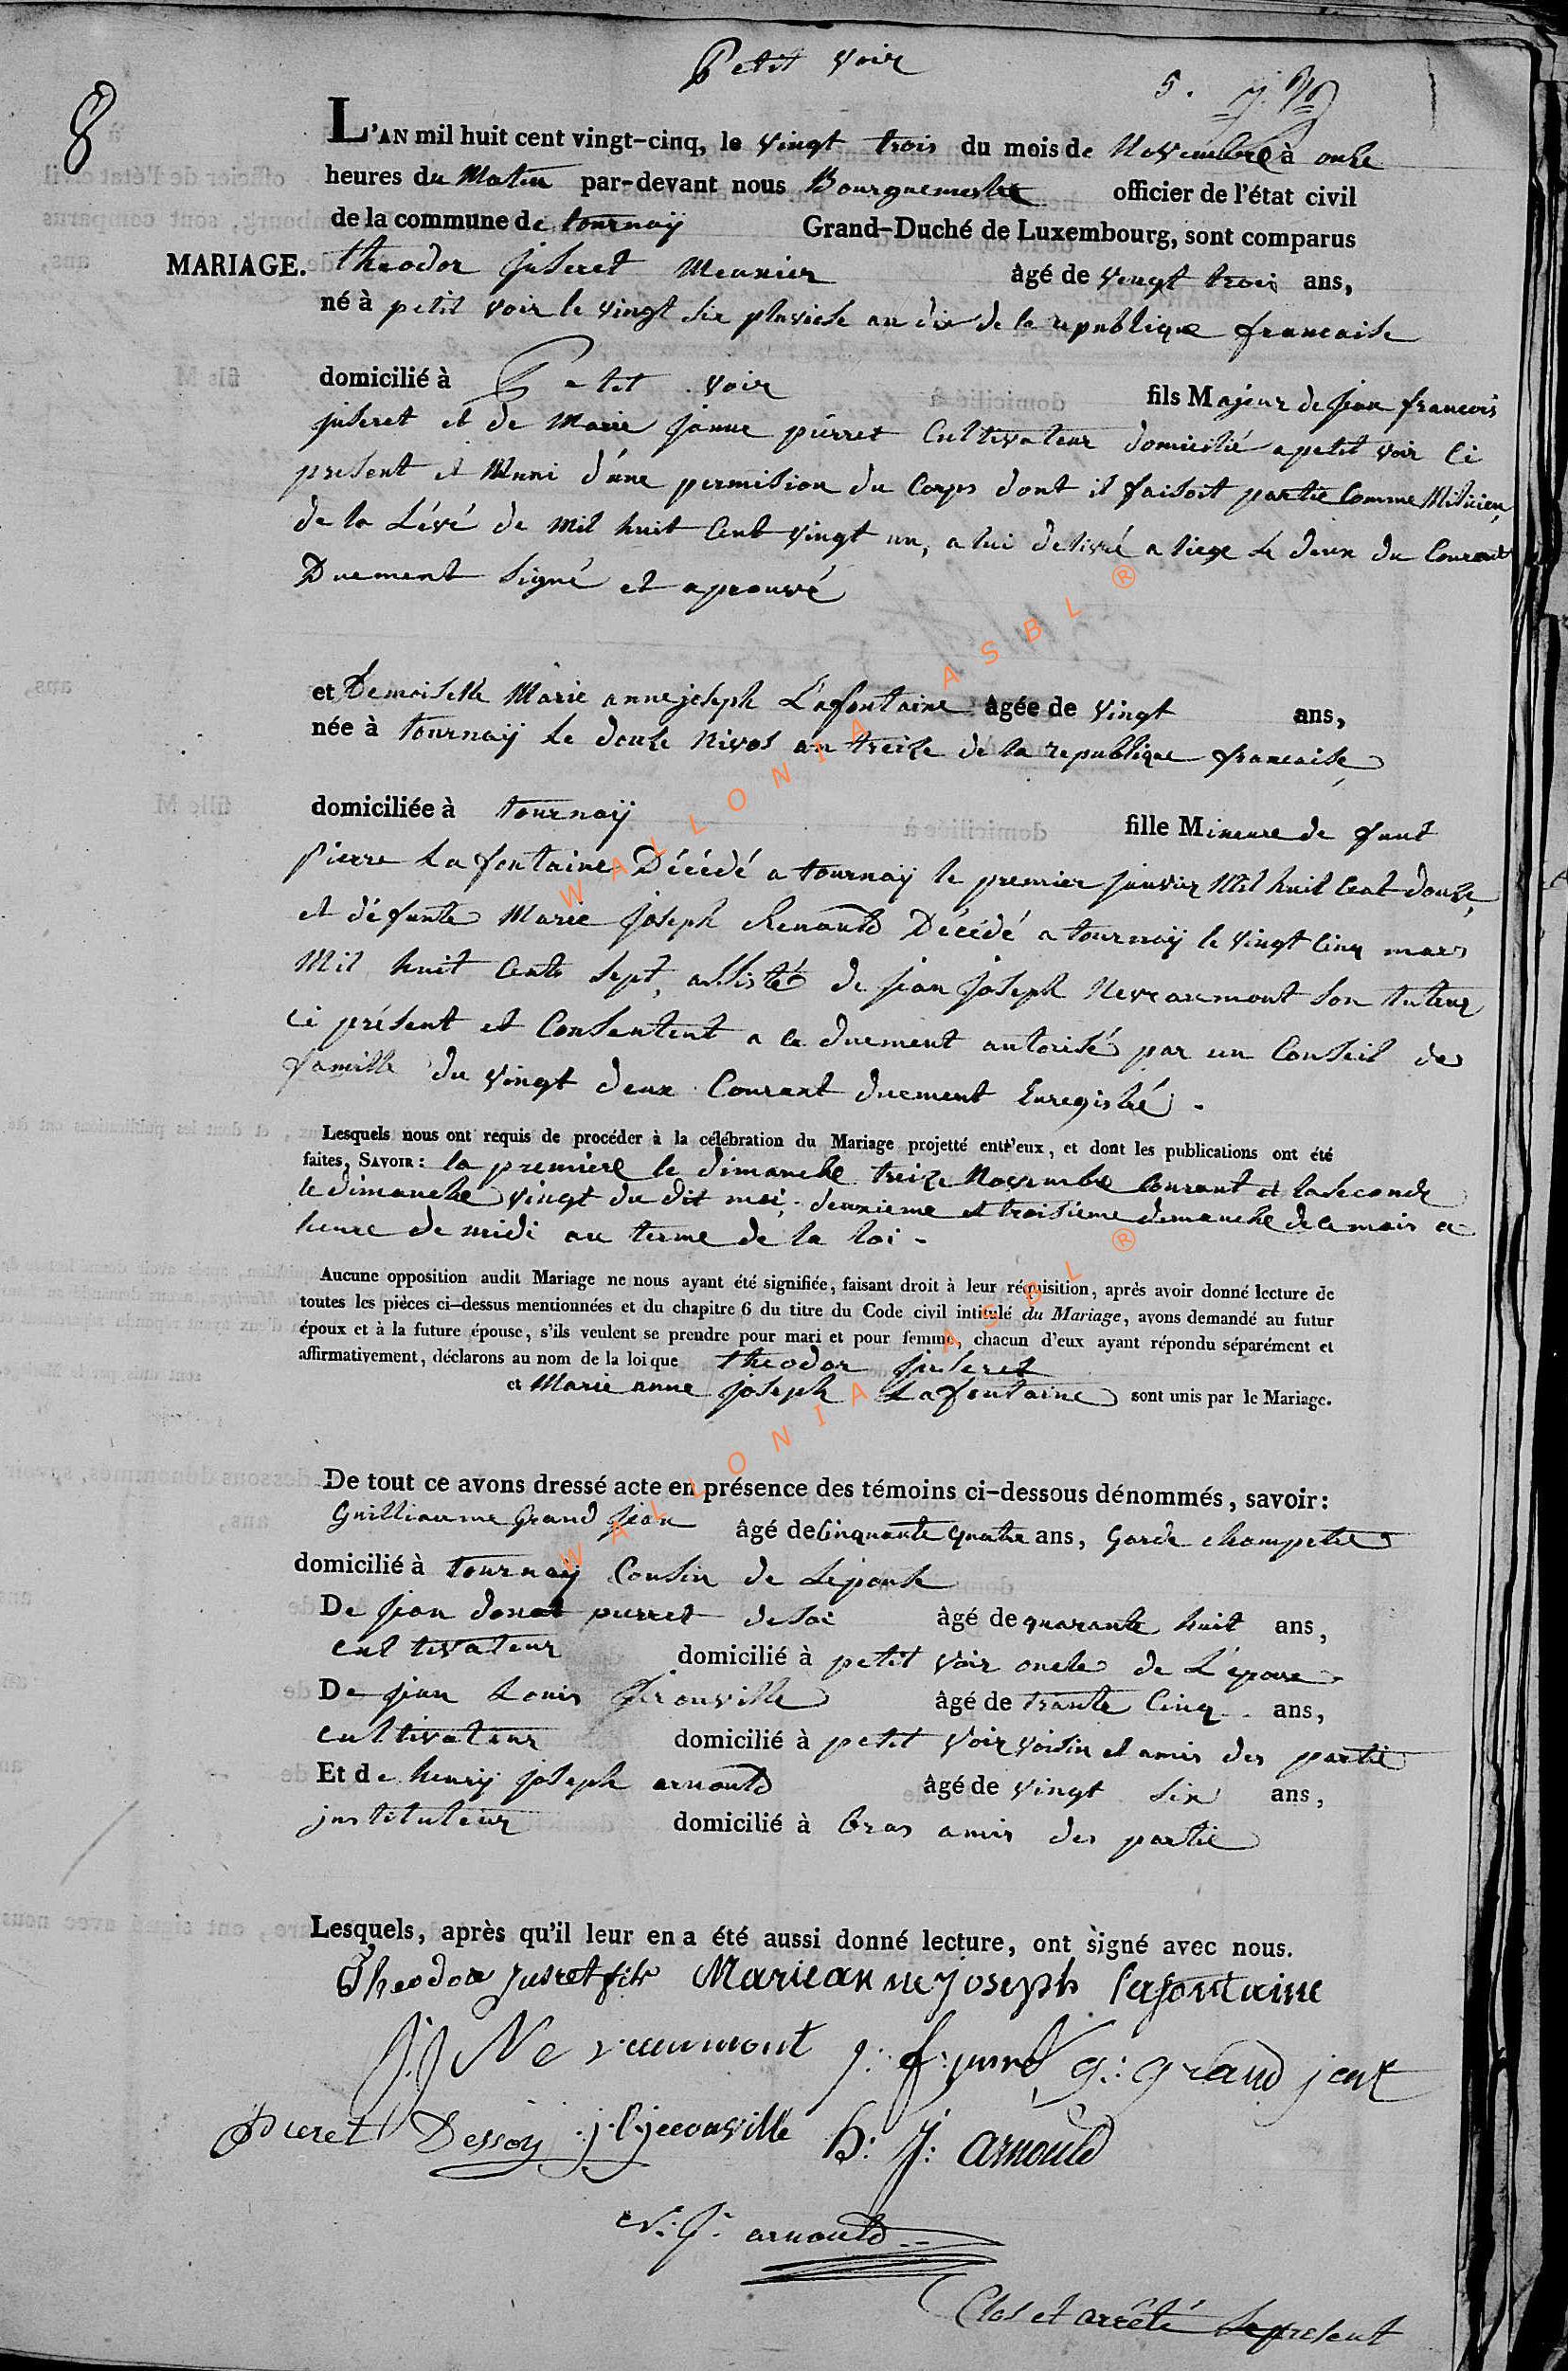 Petit voir
8
5.
L'AN mil huit cent vingt-cinq, le vingt trois du mois de Novembre à onze
heures du Matin par-devant nous Bourguemestre officier de l'état civil
de la commune de tournaÿ Grand-Duché de Luxembourg, sont comparus
MARIAGE. theodor juseret Meunier âgé de vingt trois ans,
né à petit voir le vingt six pluviose an dix de la republique francaise
domicilié à Petit voir fils Majeur de jean francois
juseret et de Marie janne pierret Cultivateur domicilié a petit voir Ci
present et Muni d'une permision du Corps dont il faisoit partie Comme Milicien,
de la Lévé de Mil huit Cent vingt un, a lui delivré a liege Le deux du Courant
Duement Signé et aprouvé
et Demoiselle Marie anne joseph Lafontaine âgée de vingt ans,
née à tournaÿ Le douze Nivos an treize de la republique francaise
domiciliée à tournaÿ fille Mineure de funt
pierre Lafontaine Décédé a tournaÿ le premier janvier Mil huit Cent douze,
et défunte Marie joseph Renauld Décédé a tournaÿ le vingt Cinq mars
Mil huit Cents Sept, assisté de jean joseph Nevraumont Son tuteur
Ci présent et Consentent a ce duement autorisé par un Conseil de
famille du vingt deux Courant duement Enregistré.
Lesquels nous ont requis de procéder à la célébration du Mariage projetté entr'eux, et dont les publications ont été
faites, SAVOIR: la premiere le dimanche treize Novembre Courant et la Seconde
le dimanche vingt du dit moi, deuxieme et troisieme dimanche de ce mois a
heure de midi au terme de la loi.
Aucune opposition audit Mariage ne nous ayant été signifiée, faisant droit à leur réquisition, après avoir donné lecture de
toutes les pièces ci-dessus mentionnées et du chapitre 6 du titre du Code civil intitulé du Mariage, avons demandé au futur
époux et à la future épouse, s'ils veulent se prendre pour mari et pour femme, chacun d'eux ayant répondu séparément et
affirmativement, déclarons au nom de la loi que theodor juseret
et Marie anne joseph Lafontaine sont unis par le Mariage.
De tout ce avons dressé acte en présence des témoins ci-dessous dénommés, savoir:
Guilliaume Grand jean âgé de Cinquante quatre ans, Garde champetre
domicilié à tournaÿ Cousin de Lepouse
De jean donat pierret desoi âgé de quarante huit ans,
cultivateur domicilié à petit voir oncle de L'epoux
De jean Louis jerouville âgé de trante Cinq ans,
cultivateur domicilié à petit voir voisin et amis des partie
Et de henrÿ joseph arnould âgé de vingt Six ans,
instituteur domicilié à bras amis des partie
Lesquels, après qu'il leur en a été aussi donné lecture, ont signé avec nous.
Theodor jusret fils Marie anne joseph lafontaine
j.j Nevraumont g: grand jent
pieret Dessoy j.l jerouville h: j: arnould
arnould
Clos et arrêté le present
WALLONIA ASBL ®
WALLONIA ASBL ®